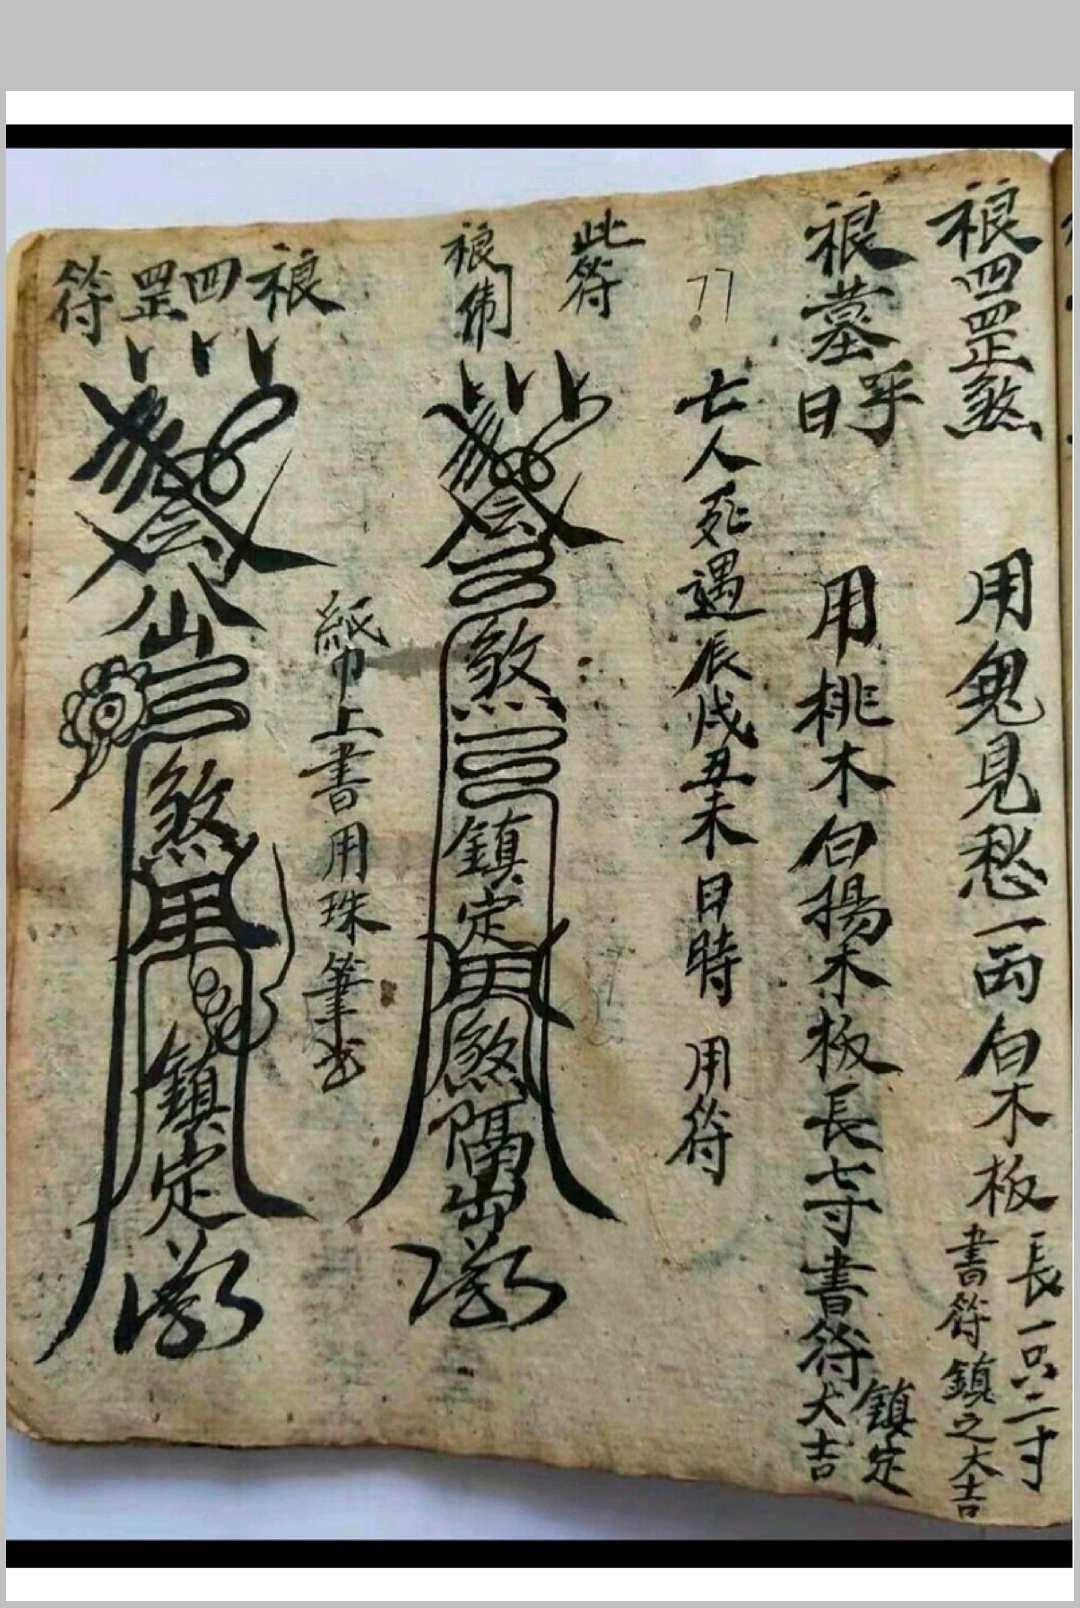 䘪四罡煞 用鬼見愁一両白木板長一只二寸
書符鎮之大吉
䘪墓乎日 用桃木白揚木板長七寸書符鎮定
大吉
亡人死遇辰戌丑未日時 用符
此符
䘪
煞
鎮定
煞隔出
紙巾上書用珠筆书
䘪四罡符
山
煞
鎮定